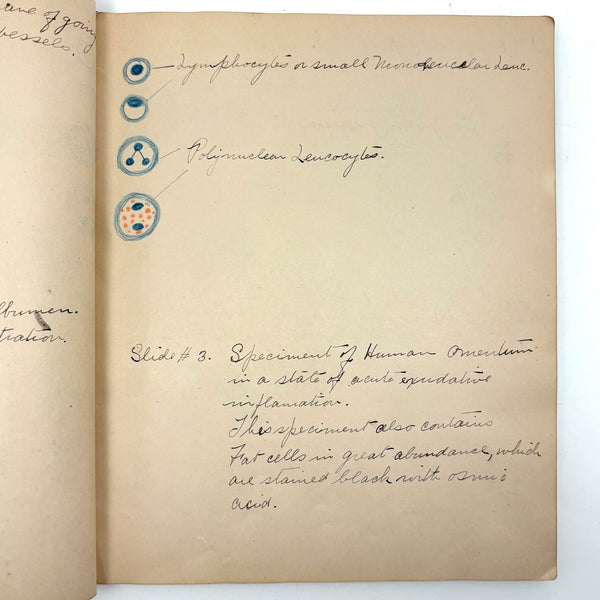 ane of going
vessels.
lbumen.
tration.
Lymphocytes or small Mononuclear Leuc.
Polynuclear Leucocytes.
Slide # 3. Speciment of Human omentum
in a state of acute exudative
inflamation.
This speciment also contains
Fat cells in great abundance, which
are stained black with osmic
acid.